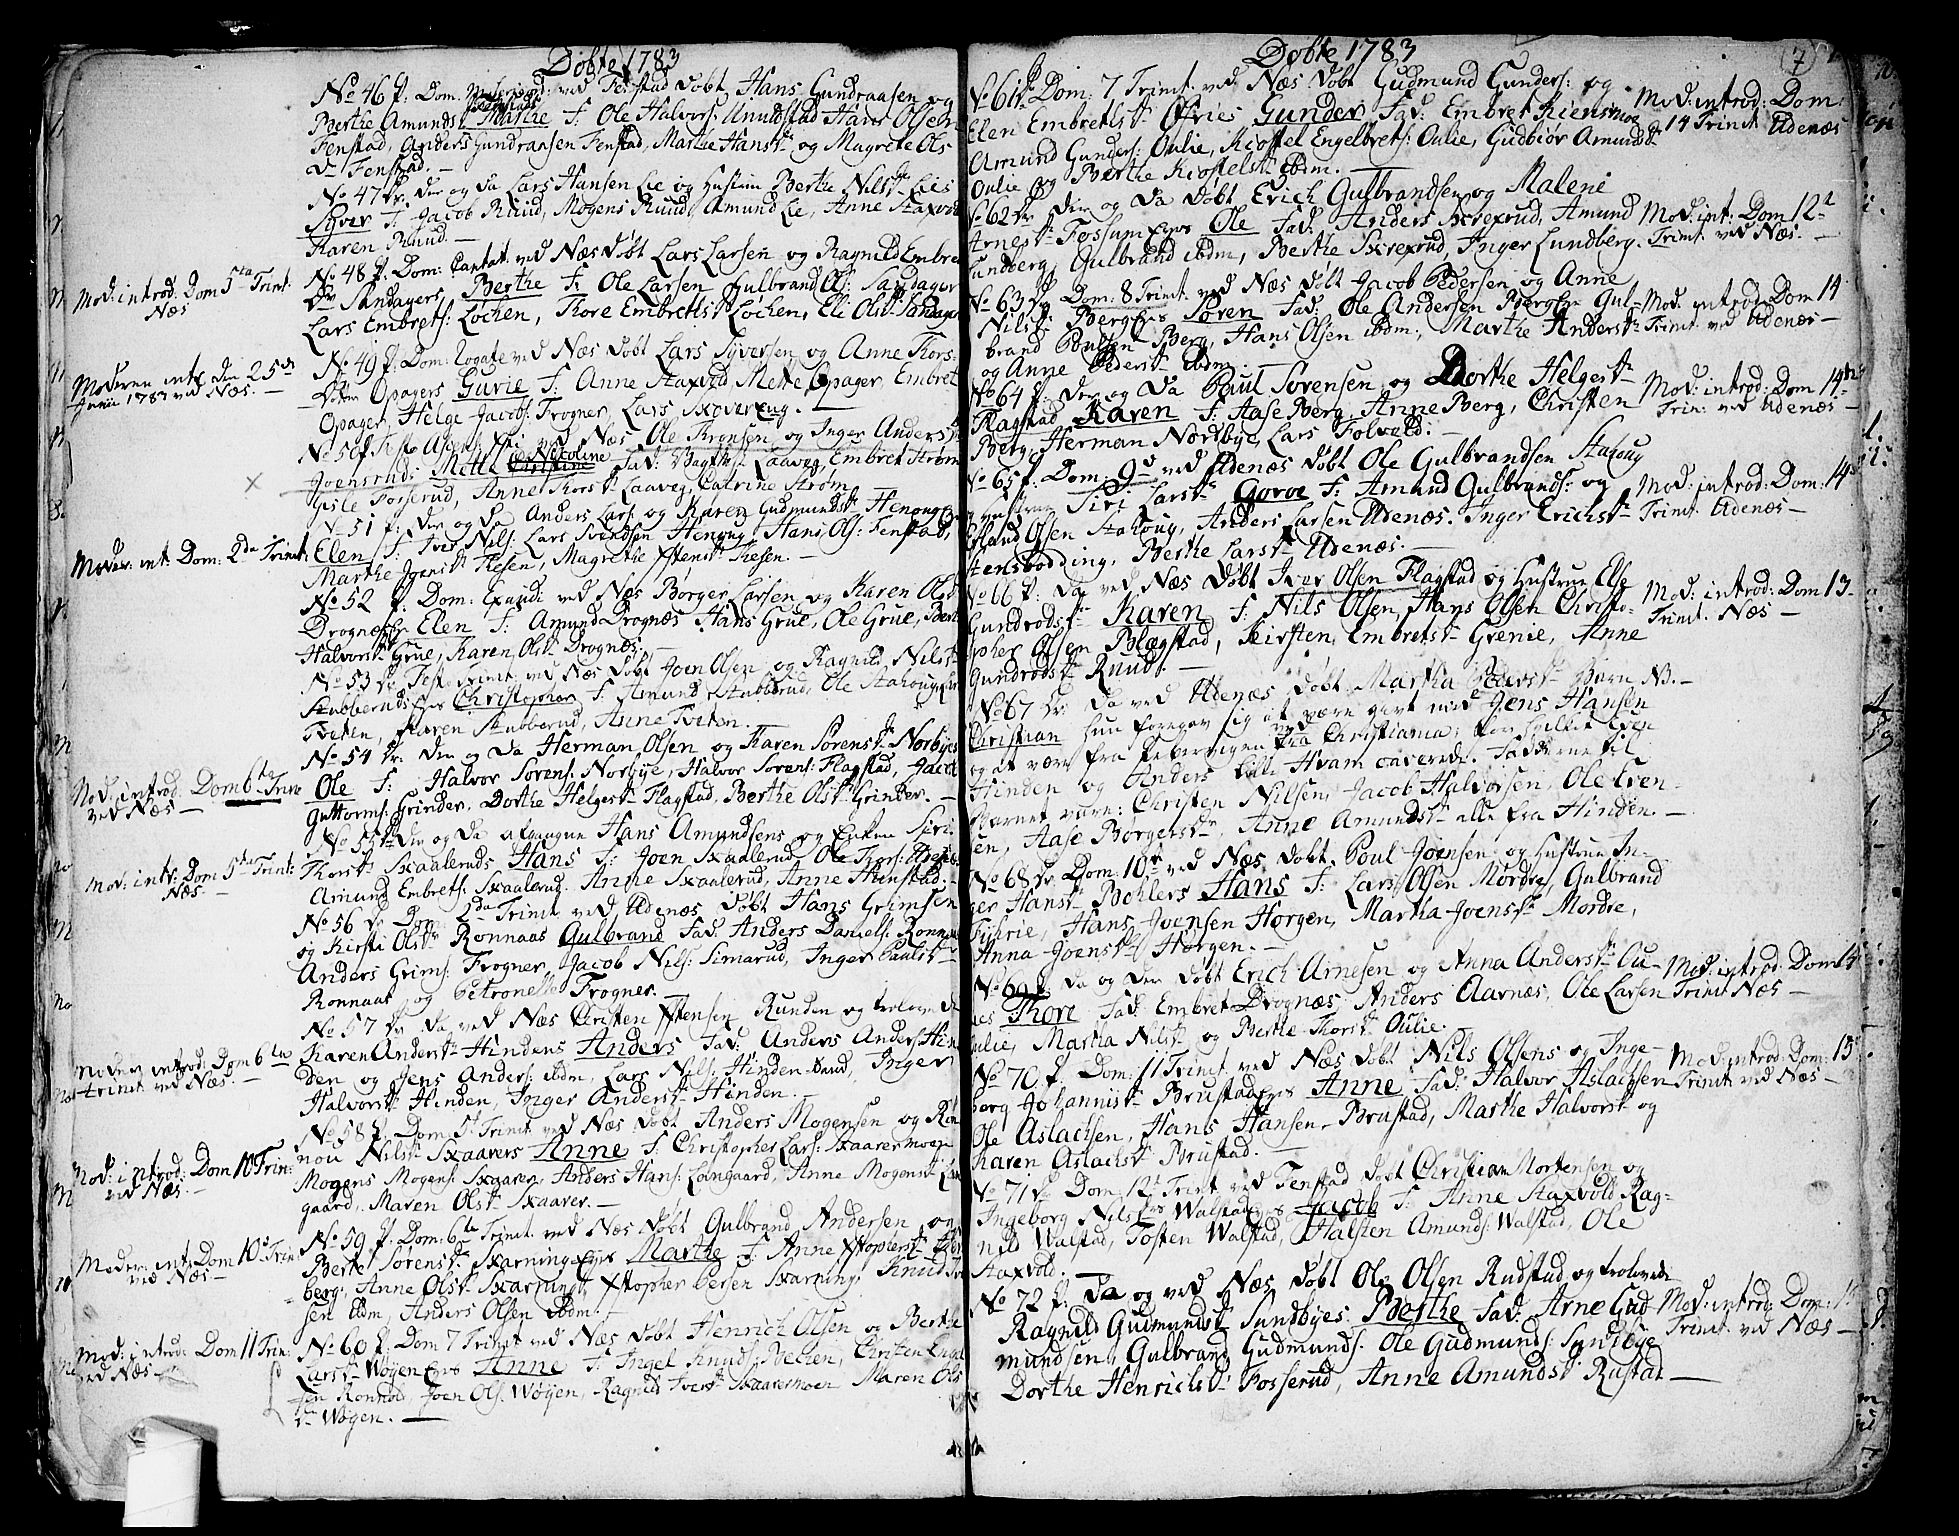 Døbte 1783
No 46 P. Dom. Misericord: ved Fenstad døbt Hans Gundraasen og
Berthe Amunds Marthe F: Ole Halvors: Hans Olsen
Fenstad, Anders Gundraasen Fenstad, Marthe Hansdr og Magrete Ols
dr Fenstad. —
No 47 Dr. Die og da Lars Hansen Lie og Hustrue Berthe Nilsdr Lies
Syver F: Jacob Ruud, Mogens Ruud, Amund Lie, Anne Haxvold
Karen Ruud. —
No 48 P. Dom: Cantat: ved Næs døbt Lars Larsen og Ragnild Embret
Dr Sandagers Berthe F: Ole Larsen Gulbrand Ols: Sandager
Lars Embrets: Løchen, Thore Embretsdr Løchen, Eli Olsdr Sandager
Mod: introd: Dom 5ta Trint:
Næs
No 49 P. Dom: Rogate ved Næs døbt Lars Syversen og Anne Thors:
Dotter Opagers Gurie F: Anne Haxvold Mette Opager, Embret
Opager, Helge Jacobs: Frogner, Lars Skovereng. —
Moderen intr. den 25de
Junii 1783 ved Næs. —
No 50 P. Festo Ascens: Xsti ved Næs Ole Aronsen og Inger Anders
Joensruds Mette Nicoline Fad: Laaveg, Embret Strøm
Gisle Fosserud, Anne Thorsdr Laaveg, Catrine Strøm.
x
No 51 P. Die og da Anders Lars: og Karen Gudmundsdr Henoug
Elen F: Iver Nils: Lars Svendsen Henoug, Hans Ols: Fenstad,
Marthe Jensdr Hesen, Magrethe Hesen. —
Moder: intr: Dom: 2da Trinit:
No 52 P. Dom: Exaudi ved Næs Børger Larsen og Karen Olsdr
Drognæs Elen F: Amund Drognæs Hans Grue, Ole Grue, Berthe
Halvorsdr Grue, Karen Olsdr Drognæs. —
No 53 Dr. Festo Trinit: ved Næs døbt Joen Olsen og Ragnild Nilsdr
Stubberuds Christopher F: Amund Stubberud, Ole Aahoug,
Tveten, Karen Stubberud, Anne Tveten. —
No 54 Dr. Die og da Herman Olsen og Karen Sørensdr Norbyes
Ole F: Halvor Sørens: Norbye, Halvor Sørens: Flagstad, Jacob
Guttorms: Grinder, Dorthe Helgesdr Flagstad, Berthe Olsdr Grinder. —
Mod: introd: Dom 6ta Trint
ved Næs —
No 55 Die og da afgangne Hans Amundsens og Enken Siri
Thorsdr Skaaleruds Hans F: Joen Skaalerud, Ole Thors:
Amund Embrets: Skaalerud. Anne Skaalerud, Anne Hunstad. —
Mod: intr: Dom 5ta Trint:
Næs —
No 56 Dr Dom 2da Trinit: ved Udenæs døbt Hans Grimsen
og Kirsti Olsdr Rønnaas Gulbrand Fad: Anders Daniels: Rønnaas
Anders Grims: Frogner, Jacob Nils: Simarud, Inger Paulsdr
Rønnaas og Petronelle Frogner. —
No 57 Dr. Da ved Næs Christen Runden og trolovede
Karen Andersdr Hindens Anders Fad: Anders Anders: Hin
den og Jens Anders: ibdm, Lars Nils: Hinden-sand, Inger
Halvorsdr Hinden, Inger Andersdr Hinden. —
Moder introd: Dom 6ta
Trinit: ved Næs. —
No 58 P. Dom 5t Trinit: ved Næs døbt Anders Mogensen og Rin
nou Nilsdr Skaarers Anne F: Christopher Lars: Skaarermoen
Mogens Mogens: Skaarer, Anders Hans: Longaard, Anne Mogensdr Lon
gaard, Maren Olsdr Skaarer. —
Mod: introd: Dom 10 Trin:
ved Næs. —
No 59 P. Dom: 6ta Trinit: ved Næs døbt Gulbrand Andersen og
Berte Sørensdr Skarning Marthe F: Anne Xstophersdr
berg, Anne Olsdr Skarning, Xstopher Persen Skarning, Knud
sen ibdm, Anders Olsen ibdm. —
Moder: intr: Dom 10d Trin
ved Næs —
No 60 P. Dom 7 Trinit ved Næs døbt Henrich Olsen og Berthe
Larsdr Wogen Anne F: Ingel Knuds: Christen
sen Rønnod, Joen Ols: Wogen, Ragnild Iversdr Skaarermoen Maren Ols
dr Wogen. —
Mod: introd: Dom 11 Trin:
ved Næs —
Døbte 1783
7
No 61 Dom: 7 Trinit: ved Næs døbt Gudmund Gunders: og
Elen Embretsdr Øfries Gunder Fad: Embret Kiensmoe
Amund Gunders: Oulie, Kiøstel Engelbrets: Oulie, Gudbiør Amundsdr
Oulie og Berthe Kiøstelsdr ibdm. —
Mod: introd: Dom:
14 Trinit. Udenæs
No 62 Dr Die og Da døbt Erich Gulbrandsen og Malene
Arnesdr Fossum Ole Fad: Anders Skrexrud, Amund
Lundberg, Gulbrand ibdm, Berthe Skrexrud, Inger Lundberg.
Mod: int: Dom 12te
Trint. ved Næs. —
No 63 Dr. Dom: 8 Trinit. ved Næs døbt Jacob Pedersen og Anne
Nilsdr Berg Søren Fad: Ole Andersen Berg Gul-
brand Poulsen Berg, Hans Olsen ibdm, Marthe Andersdr
og Anne Pedersdr ibdm. —
Mod. introd: Dom 14
Trinit. ved Udenæs —
No 64 P. Die og Da Paul Sørensen og Dorthe Helgesdr
Flagstad Karen F: Aase Berg, Anne Berg, Christen
Berg, Herman Nordbye, Lars Folvold. —
Mod: introd: Dom 14de
Trin: ved Udenæs —
No 65 P. Dom: 9d ved Udenæs døbt Ole Gulbrandsen Aahoug
og Hustrue Siri Larsdr Gorve F: Amund Gulbrands: og
Erland Olsen Aahoug, Anders Larsen Udenæs. Inger Erichsdr
Stensbørding, Berthe Larsdr Udenæs. —
Mod: introd: Dom: 14
Trinit: Udenæs —
No 66 P. Da ved Næs døbt Iver Olsen Flagstad og Hustrue Else
Gundrodsdr Karen F: Nils Olsen, Hans Olsen Christo-
pher Olsen Blegstad, Kirsten Embretsdr Grenie, Anne
Gundrodsdr Ruud. —
Mod: introd: Dom 13
Trinit. Næs —
No 67 Dr. Da ved Udenæs døbt Martha Pedersdr Barn NB. —
Christian hun foregav sig at være givt med Jens Hansen
og at være fra Pebervigen ved Christiania; Even
Hinden og Anders Lille Hvam caverede. Fadderne til
Barnet vare: Christen Nilsen, Jacob Halvorsen, Ole Even-
sen, Aase Børgersdr, Anne Amundsdr alle fra Hinden. —
No 68 Dr Dom. 10de ved Næs døbt. Poul Joensen og Hustrue In-
ger Hansdr Bohlers Hans F: Lars Olsen Mordre, Gulbrand
Fihrie, Hans Joensen Horgen, Martha Joensdr Mordre,
Anna Joensdr Horgen. —
No 69 P. Da og Die døbt Erich Arnesen og Anna Andersdr Ou-
lies Thore Fad: Embret Drognæs Anders Aarnæs, Ole Larsen
Oulie, Martha Nilsdr og Berthe Thorsdr Oulie.
Mod: introd: Dom 14
Trinit Næs —
No 70 P. Dom: 11 Trinit: ved Næs døbt Nils Olsens og Inge-
borg Johannisdr Brustad Anne Fad: Halvor Aslachsen
Ole Aslachsen, Hans Hansen Brustad, Marthe Halvorsdr og
Karen Aslachsdr Brustad. —
Mod: introd: Dom: 15
Trinit ved Næs —
No 71 Dr Dom. 12t Trinit ved Fenstad døbt Christian Mortensen og
Ingeborg Nilsdr Walstad Jacob F: Anne Haxvold Rag-
nild Walstad, Tosten Walstad, Halsten Amunds: Walstad, Ole
Haxvold. —
No 72 P. Da og ved Næs døbt Ole Olsen Rudstad og trolovede
Ragnild Gudmundsdr Sundbyes Berthe Fad: Arne Gud
mundsen, Gulbrand Gudmunds: Ole Gudmunds: Sundbye
Dorthe Henrichsdr Fosserud, Anne Amundsdr Rustad —
Mod: introd: Dom:
Trinit. ved Næs —